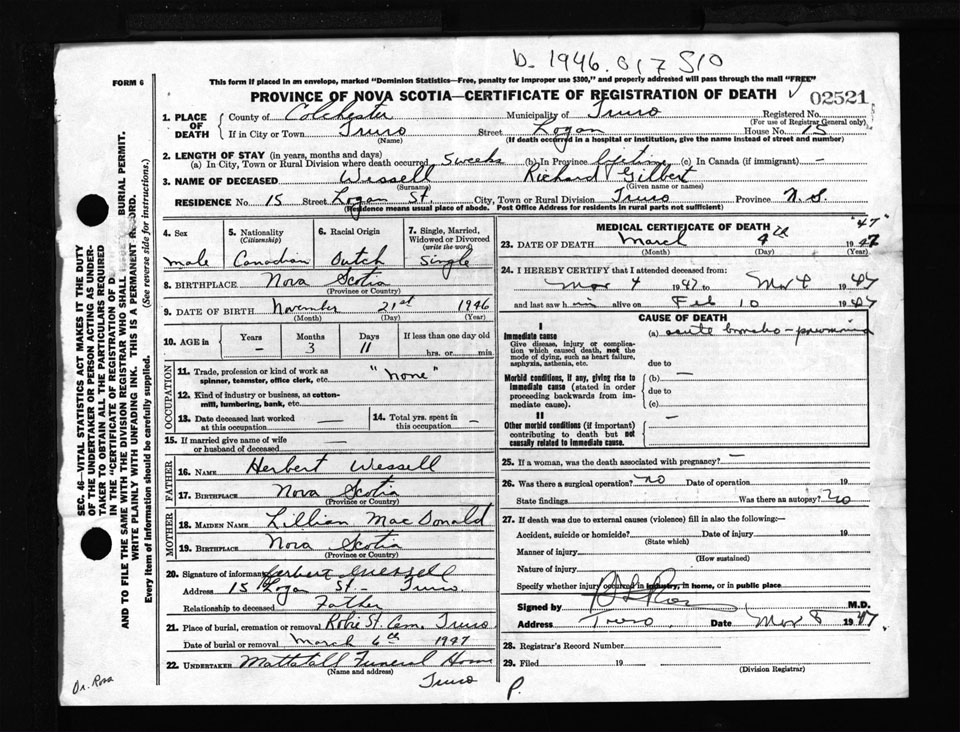 b. 1946. 017510
FORM 6
This form if placed in an envelope, marked "Dominion Statistics—Free, penalty for improper use $300," and properly addressed will pass through the mail "FREE"
PROVINCE OF NOVA SCOTIA—CERTIFICATE OF REGISTRATION OF DEATH
02521
1. PLACE OF DEATH County of Colchester Municipality of Truro Registered No.
(For use of Registrar General only)
If in City or Town Truro Street Logan House No. 15
(Name) (If death occurred in a hospital or institution, give the name instead of street and number)
2. LENGTH OF STAY (in years, months and days)
(a) In City, Town or Rural Division where death occurred 5 weeks (b) In Province lifetime (c) In Canada (if immigrant) —
3. NAME OF DECEASED Wessell Richard Gilbert
(Surname) (Given name or names)
RESIDENCE No 15 Street Logan St. City, Town or Rural Division Truro Province N.S.
(Residence means usual place of abode. Post Office Address for residents in rural parts not sufficient)
4. Sex
male
5. Nationality
(Citizenship)
Canadian
6. Racial Origin
Dutch
7. Single, Married, Widowed or Divorced
(write the word)
Single
8. BIRTHPLACE Nova Scotia
(Province or Country)
9. DATE OF BIRTH November 21st 1946
(Month) (Day) (Year)
10. AGE in Years Months Days If less than one day old
— 3 11 hrs. or min.
OCCUPATION
11. Trade, profession or kind of work as spinner, teamster, office clerk, etc. "none"
12. Kind of industry or business, as cotton-mill, lumbering, bank, etc.
13. Date deceased last worked at this occupation —
14. Total yrs. spent in this occupation —
15. If married give name of wife or husband of deceased —
FATHER
16. NAME Herbert Wessell
17. BIRTHPLACE Nova Scotia
(Province or Country)
MOTHER
18. MAIDEN NAME Lillian MacDonald
19. BIRTHPLACE Nova Scotia
(Province or Country)
20. Signature of informant Herbert Wessell
Address 15 Logan St- Truro.
Relationship to deceased Father
21. Place of burial, cremation or removal Robie St. Cem. Truro
Date of burial or removal March 6th 1947
22. UNDERTAKER Mattatall Funeral Home
(Name and address)
Truro
MEDICAL CERTIFICATE OF DEATH
"47"
23. DATE OF DEATH March 4th 1947
(Month) (Day) (Year)
24. I HEREBY CERTIFY that I attended deceased from:
Mar 4 1947 to Mar 4 1947
and last saw him alive on Feb 10 1947
CAUSE OF DEATH
I
Immediate cause (a) acute broncho-pneumonia
Give disease, injury or complication which caused death, not the mode of dying, such as heart failure, asphyxia, asthenia, etc.
due to
Morbid conditions, if any, giving rise to immediate cause (stated in order proceeding backwards from immediate cause).
(b) —
due to
(c)
II
Other morbid conditions (if important) contributing to death but not causally related to immediate cause.
—
25. If a woman, was the death associated with pregnancy? —
26. Was there a surgical operation? no Date of operation 19
State findings Was there an autopsy? no
27. If death was due to external causes (violence) fill in also the following:—
Accident, suicide or homicide? Date of injury 19
(State which)
Manner of injury
(How sustained)
Nature of injury
Specify whether injury occurred in industry, in home, or in public place
Signed by M.D.
Address Truro Date Mar 8 1947.
28. Registrar's Record Number
29. Filed 19
(Division Registrar)
P.
Dr. Ross
SEC. 46—VITAL STATISTICS ACT MAKES IT THE DUTY
OF THE UNDERTAKER OR PERSON ACTING AS UNDER-
TAKER TO OBTAIN ALL THE PARTICULARS REQUIRED
IN THE "CERTIFICATE OF REGISTRATION OF
AND TO FILE THE SAME WITH THE DIVISION REGISTRAR WHO SHALL BURIAL PERMIT.
WRITE PLAINLY WITH UNFADING INK. THIS IS A PERMANENT RECORD.
Every item of information should be carefully supplied. (See reverse side for instructions.)